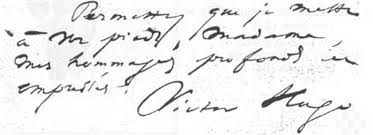 Permettez que je mette
à vos pieds, madame,
mes hommages profonds et
empressés.
Victor Hugo